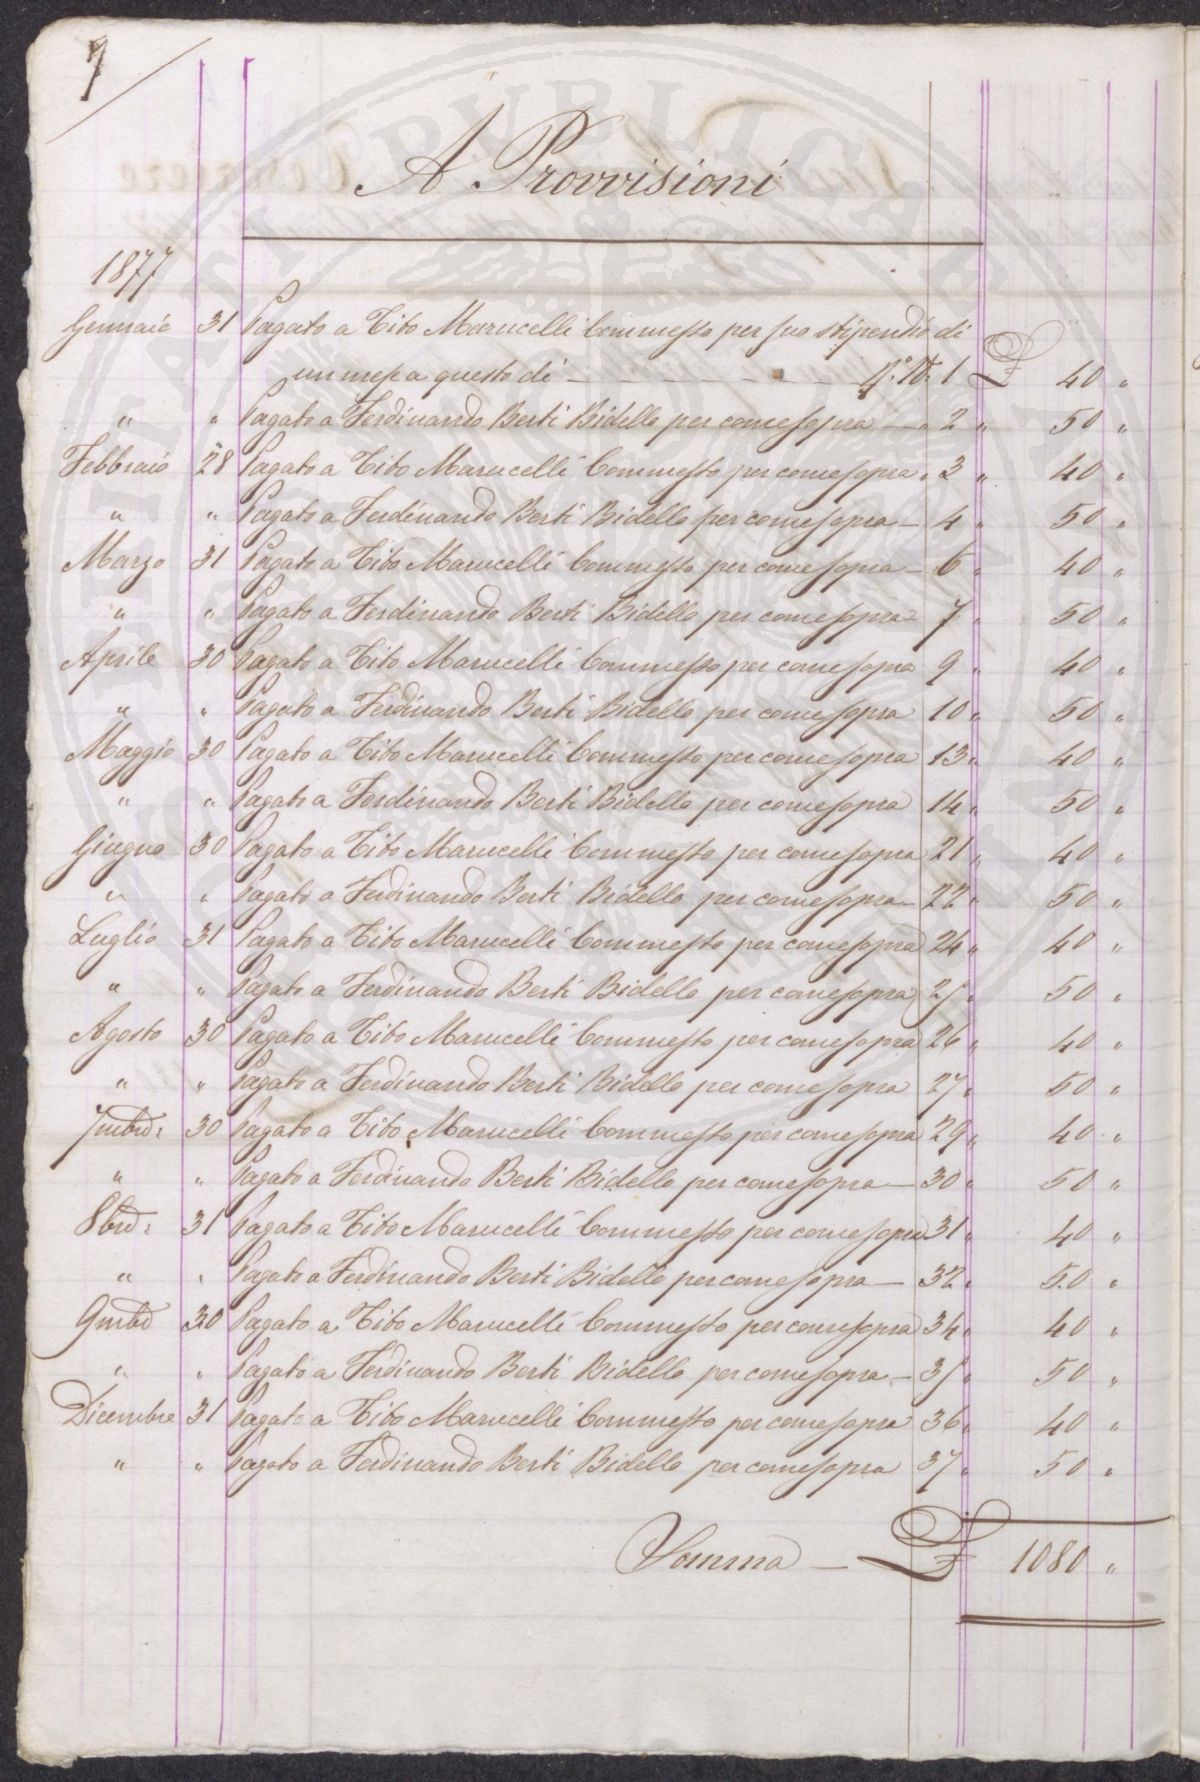 7
A Provvisioni
1877
Gennaio 31 Pagato a Tito Marucelli Commesso per suo stipendio di
un mese a questo dì — N.º 1 £ 40 "
" " Pagato a Ferdinando Berti Bidello per come sopra — " 2 " 50 "
Febbraio 28 Pagato a Tito Marucelli Commesso per come sopra " 3 " 40 "
" " Pagato a Ferdinando Berti Bidello per come sopra — 4 " 50 "
Marzo 31 Pagato a Tito Marucelli Commesso per come sopra — 6 " 40 "
" " Pagato a Ferdinando Berti Bidello per come sopra — 7 " 50 "
Aprile 30 Pagato a Tito Marucelli Commesso per come sopra 9 " 40 "
" " Pagato a Ferdinando Berti Bidello per come sopra 10 " 50 "
Maggio 30 Pagato a Tito Marucelli Commesso per come sopra 13 " 40 "
" " Pagato a Ferdinando Berti Bidello per come sopra 14 " 50 "
Giugno 30 Pagato a Tito Marucelli Commesso per come sopra 21 " 40 "
" " Pagato a Ferdinando Berti Bidello per come sopra — 22 " 50 "
Luglio 31 Pagato a Tito Marucelli Commesso per come sopra 24 " 40 "
" " Pagato a Ferdinando Berti Bidello per come sopra 25 " 50 "
Agosto 30 Pagato a Tito Marucelli Commesso per come sopra 26 " 40 "
" " Pagato a Ferdinando Berti Bidello per come sopra 27 " 50 "
7mbre 30 Pagato a Tito Marucelli Commesso per come sopra 29 " 40 "
" " Pagato a Ferdinando Berti Bidello per come sopra — 30 " 50 "
8bre 31 Pagato a Tito Marucelli Commesso per come sopra 31 " 40 "
" " Pagato a Ferdinando Berti Bidello per come sopra — 32 " 50 "
9mbre 30 Pagato a Tito Marucelli Commesso per come sopra 34 " 40 "
" " Pagato a Ferdinando Berti Bidello per come sopra — 35 " 50 "
Dicembre 31 Pagato a Tito Marucelli Commesso per come sopra 36 " 40 "
" " Pagato a Ferdinando Berti Bidello per come sopra 37 " 50 "
Somma — £ 1080 "